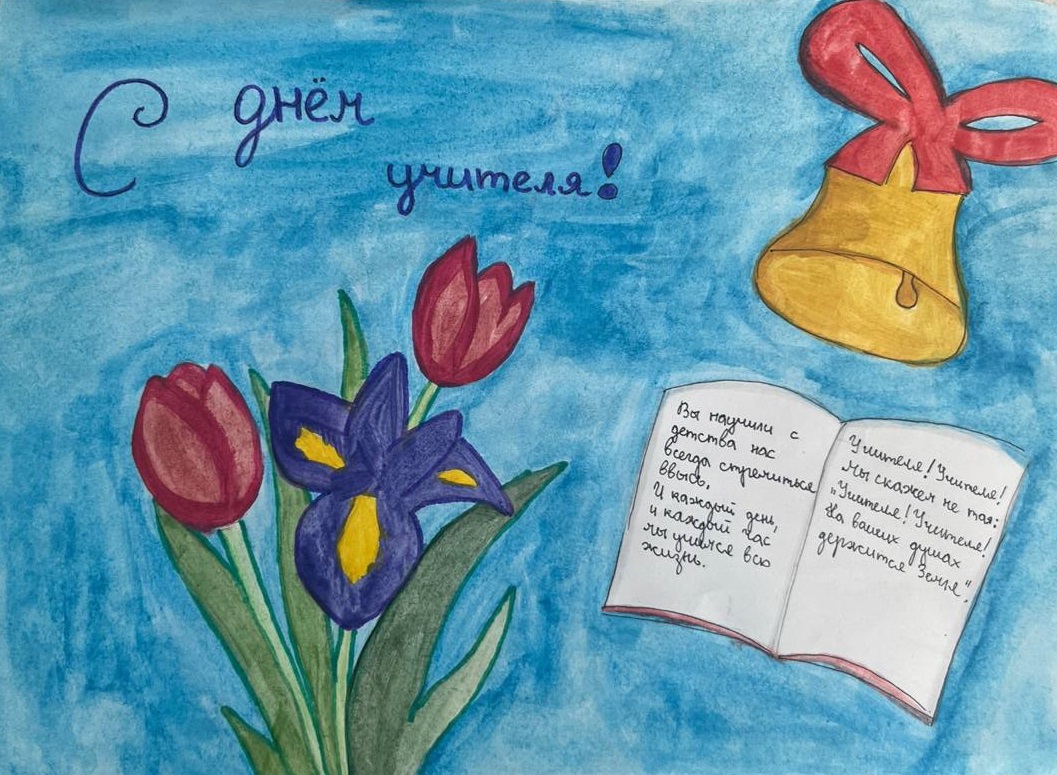 С днём
учителя!
Вы научили с
детства нас
всегда стремиться
ввысь.
И каждый день,
и каждый час
мы учимся всю
жизнь.
Учителя! Учителя!
Мы скажем не тая:
"Учителя! Учителя!
На ваших душах
держится Земля".